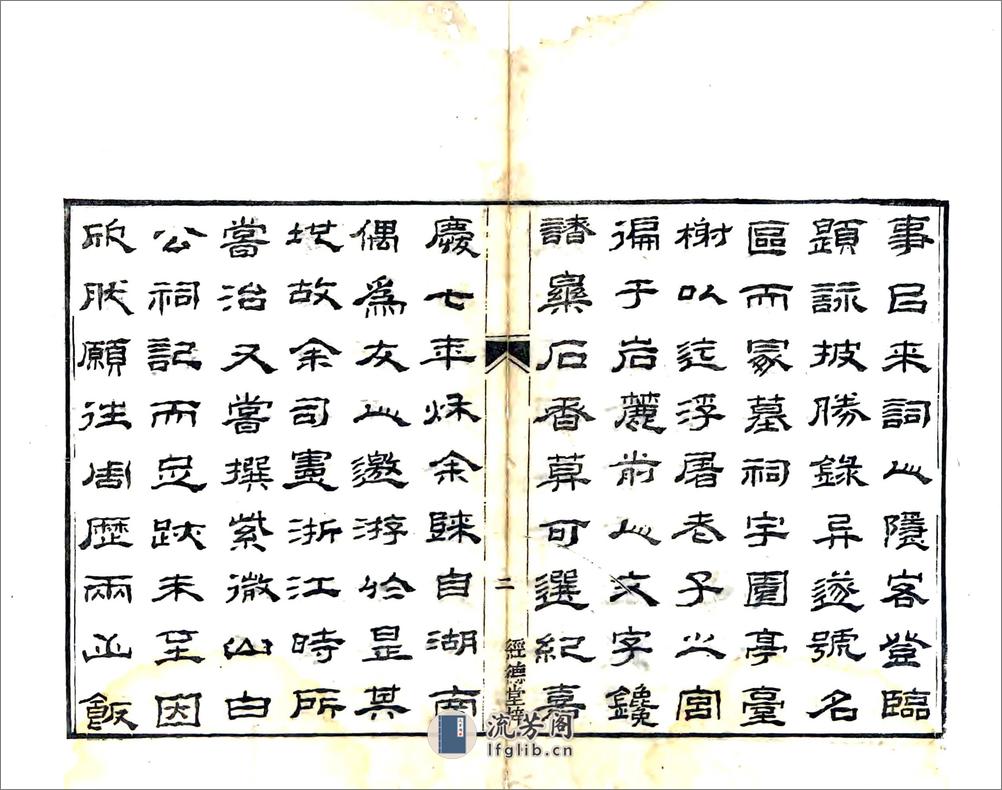 事㠯来詞人隱客登臨
題詠披勝錄异遂號名
區而冢墓祠宇園亭臺
榭以迄浮屠老子之宮
徧于岩麓前人文字鑱
諸石者莫可選紀嘉
二
經德堂梓
慶七年秋余歸自湖南
偶為友人邀游於是其
地故余司浙江時所
嘗治又嘗撰紫微山白
公祠記而足跡未至因
欣然願往周歷兩山飯
流芳阁
lfglib.cn